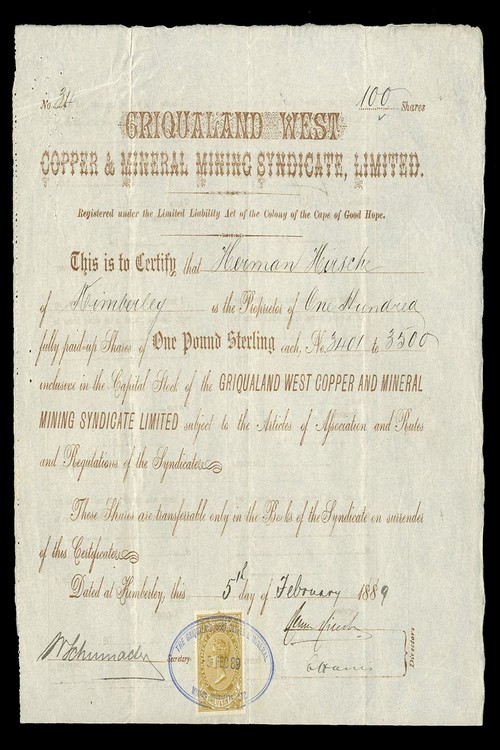 No 34 100 Shares
GRIQUALAND WEST
COPPER & MINERAL MINING SYNDICATE, LIMITED.
Registered under the Limited Liability Act of the Colony of the Cape of Good Hope.
This is to Certify that Herman Hirsche
of Kimberley is the Proprietor of One Hundred
fully paid-up Shares of One Pound Sterling each, No 3401 to 3500
inclusive in the Capital Stock of the GRIQUALAND WEST COPPER AND MINERAL
MINING SYNDICATE LIMITED subject to the Articles of Association and Rules
and Regulations of the Syndicate
These Shares are transferrable only in the Books of the Syndicate on surrender
of this Certificate
Dated at Kimberley, this 5th day of February 1889
W Schumacher Secretary
5 FEB 89
Directors